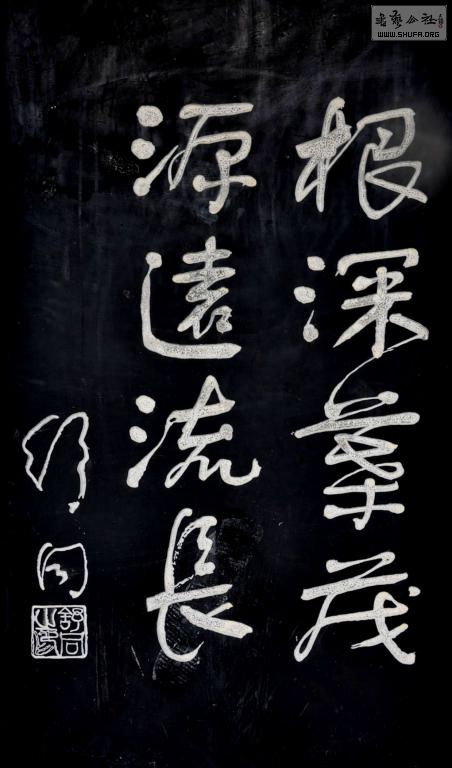 根深葉茂
源遠流長
舒同
舒同之印
書藝公社
WWW.SHUFA.ORG